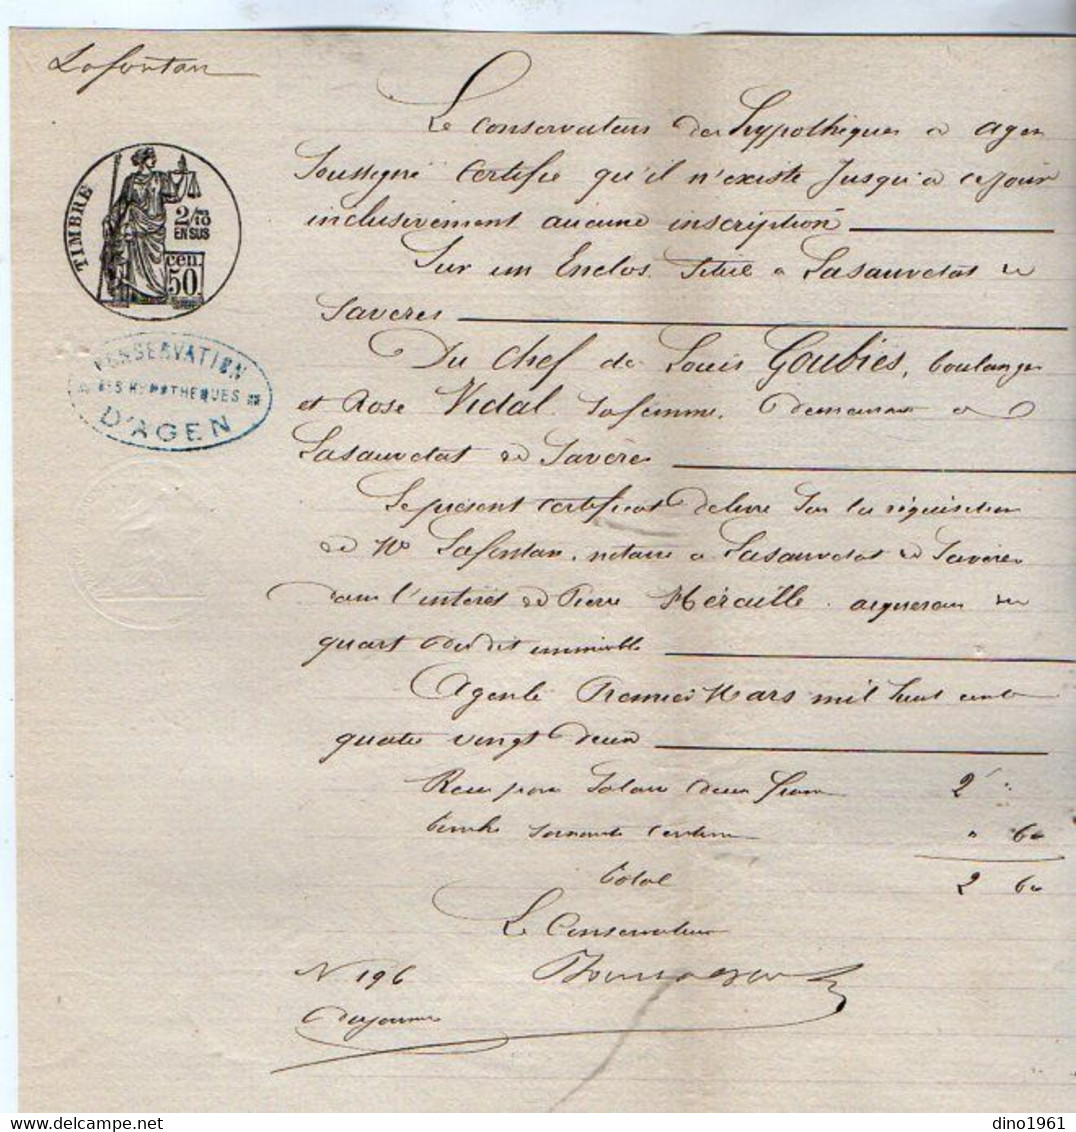 Lafontan
Le Conservateur des hypothèques a Agen
Soussigné Certifie qu'il n'existe Jusqu'a ce jour
inclusivement aucune inscription
Sur un Enclos, Situé a Lasauvetat de
Savères
Du Chef de Louis Goubies, boulanger
et Rose Vidal Sa femme, demeurant a
Lasauvetat de Savères
Le présent Certificat délivré Sur la réquisition
de Me Lafontan, notaire a Lasauvetat de Savères
dans l'intérêt de Pierre Héraille, acquéreur du
quart dudit immeuble
Agen le Premier Mars mil huit cent
quatre vingt deux
Recu pour Salaire deux francs 2 "
timbre soixante centimes " 60
total 2 60
Le Conservateur
N 196
TIMBRE
2/10
EN SUS
cen.
50.
CONSERVATION
DES HYPOTHEQUES
D'AGEN
dino1961